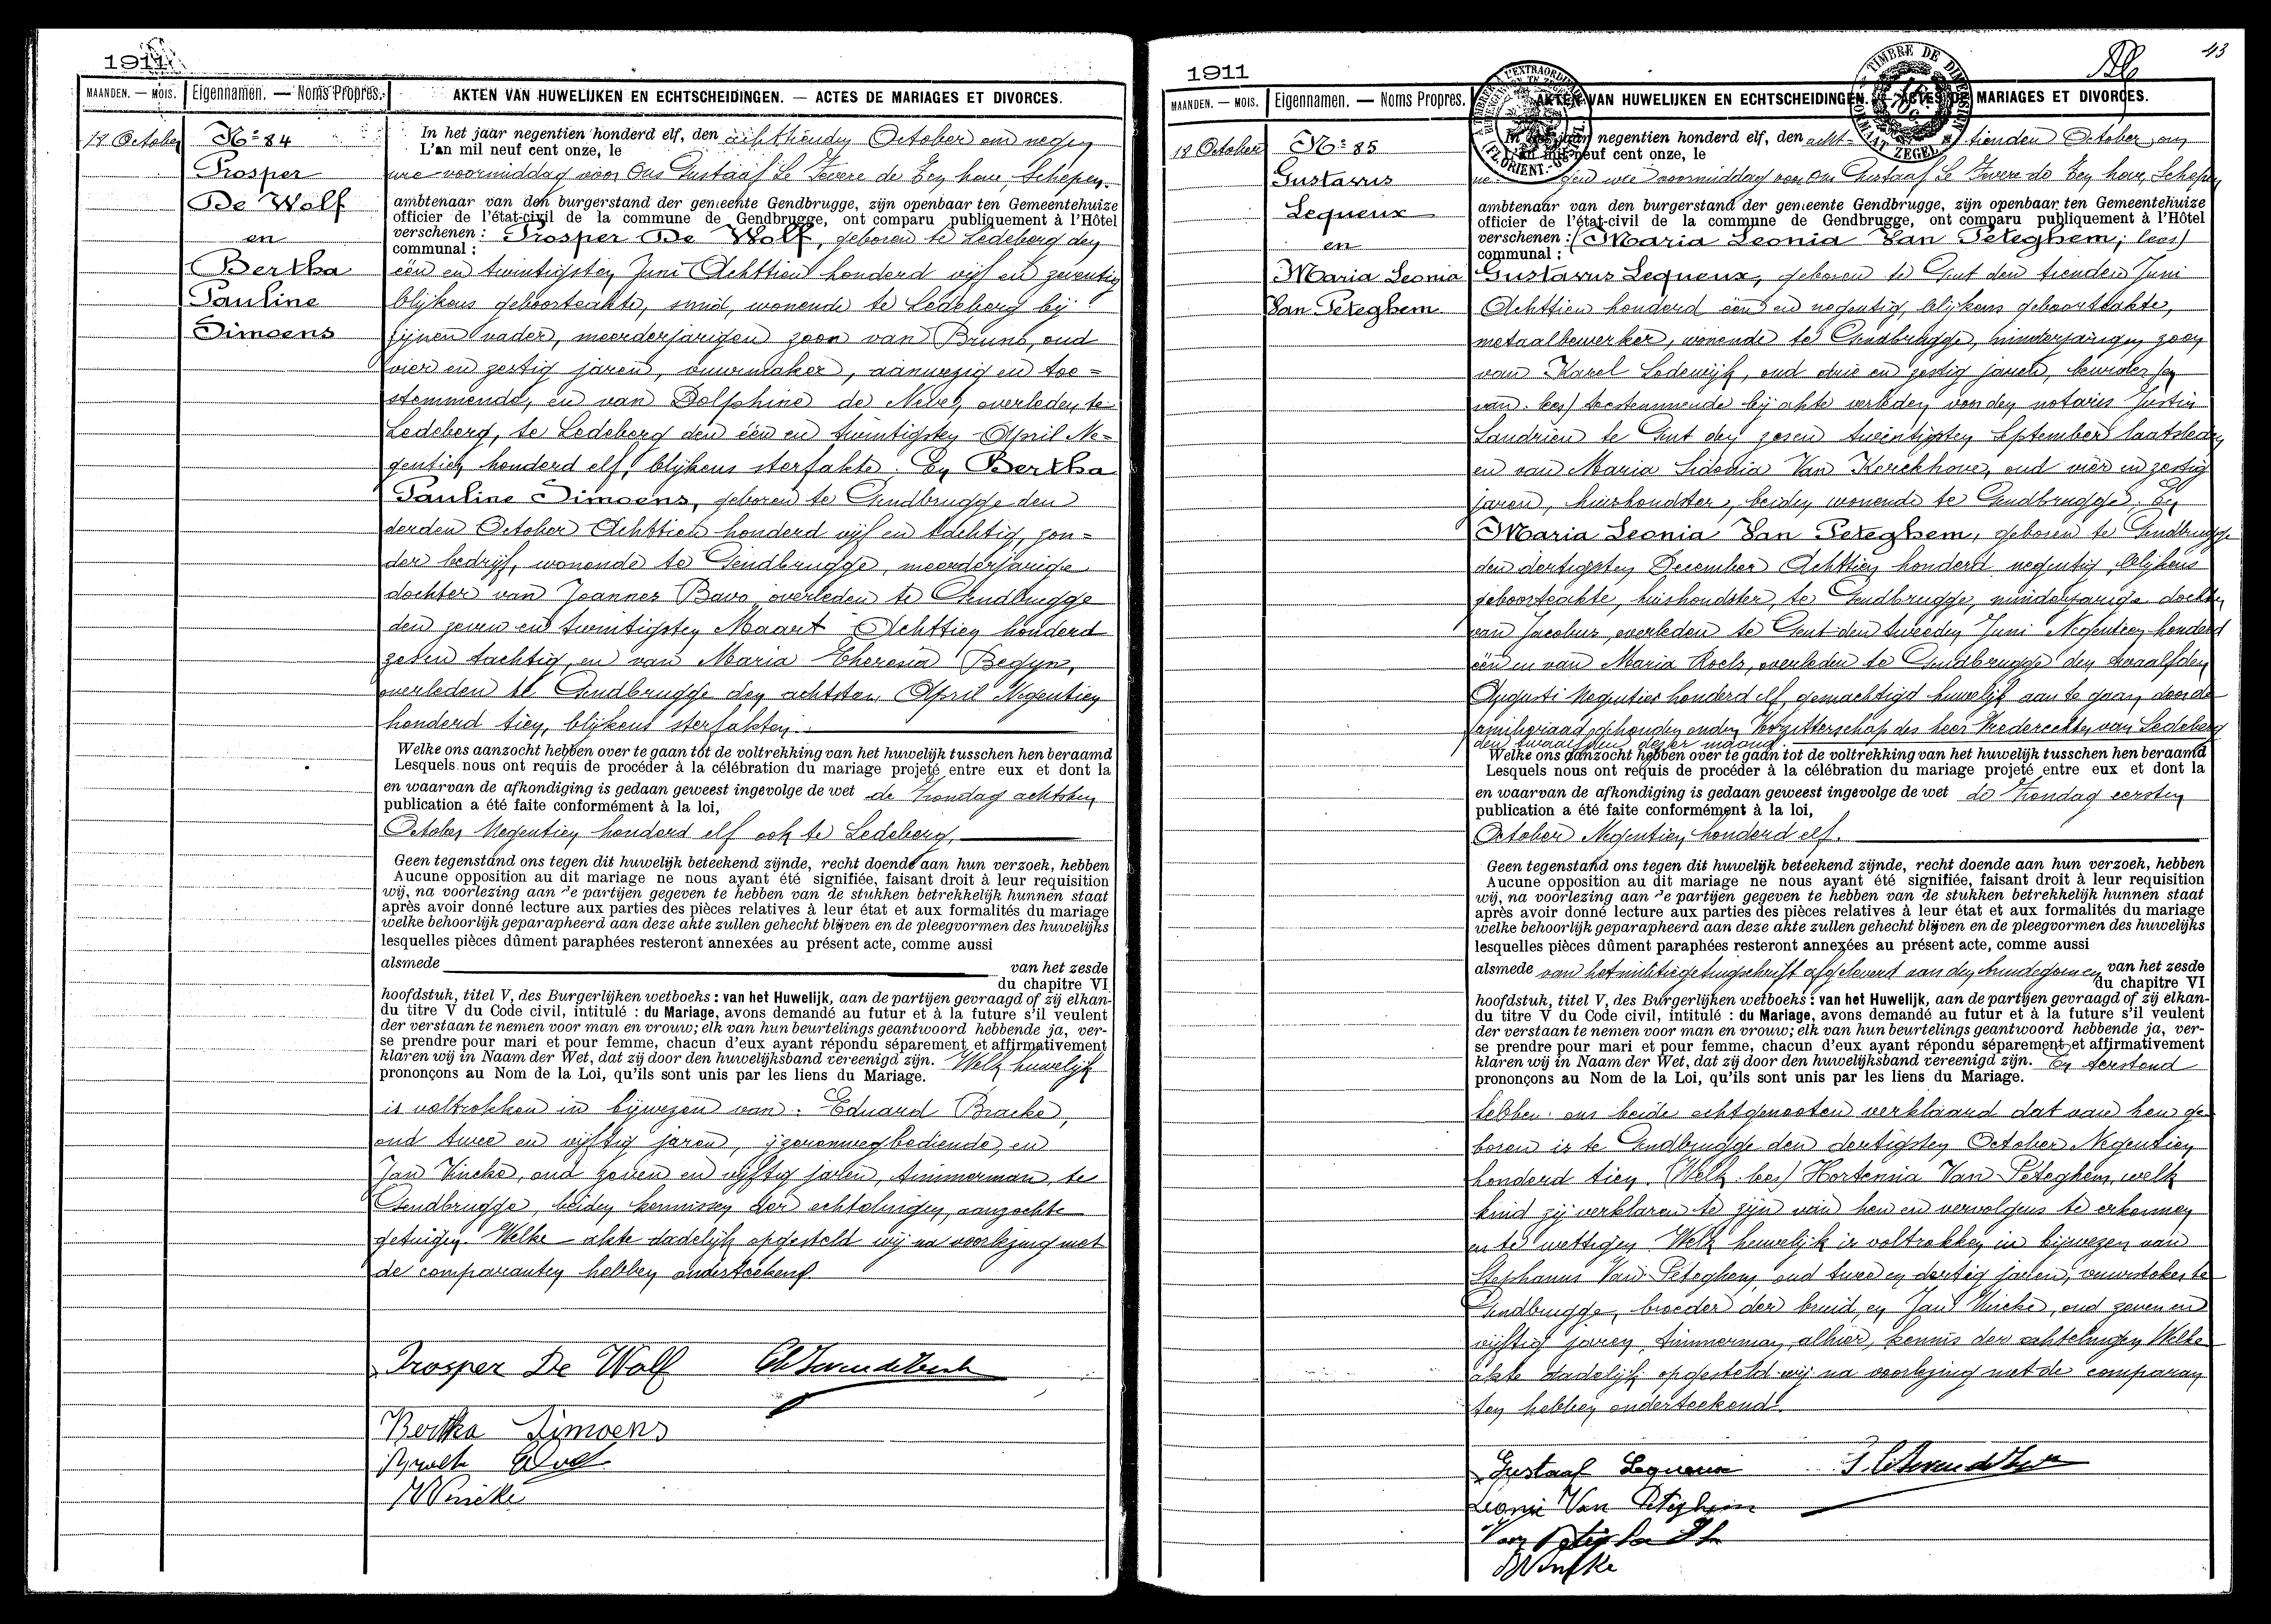 1911
MAANDEN. — MOIS.
Eigennamen. — Noms Propres.
AKTEN VAN HUWELIJKEN EN ECHTSCHEIDINGEN. — ACTES DE MARIAGES ET DIVORCES.
18 October
No 84
Prosper
De Wolf
en
Bertha
Pauline
Simoens
In het jaar negentien honderd elf, den achttienden October om negen
L'an mil neuf cent onze, le
ure voormiddag voor Ons Gustaaf Schepen.
ambtenaar van den burgerstand der gemeente Gendbrugge, zijn openbaar ten Gemeentehuize
officier de l'état-civil de la commune de Gendbrugge, ont comparu publiquement à l'Hôtel
verschenen : Prosper De Wolf, geboren te Ledeberg den
communal :
één en twintigsten Juni Achttien honderd vijf en zeventig
blijkens geboorteakte, smid, wonende te Ledeberg bij
zijnen vader, meerderjarigen zoon van Bruno, oud
vier en zestig jaren, vuurmaker, aanwezig en toe=
stemmende, en van Delphine de Neve, overleden te
Ledeberg, te Ledeberg den één en twintigsten April Ne=
gentien honderd elf, blijkens sterfakte. En Bertha
Pauline Simoens, geboren te Gendbrugge den
derden October Achttien honderd vijf en tachtig, zon=
der bedrijf, wonende te Gendbrugge, meerderjarige
dochter van Joannes Bavo overleden te Gendbrugge
den zeven en twintigsten Maart Achttien honderd
zeven tachtig, en van Maria Theresia Begyn,
overleden te Gendbrugge den achtsten April Negentien
honderd tien, blijkens sterfakten.
Welke ons aanzocht hebben over te gaan tot de voltrekking van het huwelijk tusschen hen beraamd
Lesquels nous ont requis de procéder à la célébration du mariage projeté entre eux et dont la
en waarvan de afkondiging is gedaan geweest ingevolge de wet de Zondag achtsten
publication a été faite conformément à la loi,
October Negentien honderd elf ook te Ledeberg.
Geen tegenstand ons tegen dit huwelijk beteekend zijnde, recht doende aan hun verzoek, hebben
Aucune opposition au dit mariage ne nous ayant été signifiée, faisant droit à leur requisition
wij, na voorlezing aan de partijen gegeven te hebben van de stukken betrekkelijk hunnen staat
après avoir donné lecture aux parties des pièces relatives à leur état et aux formalités du mariage
welke behoorlijk geparapheerd aan deze akte zullen gehecht blijven en de pleegvormen des huwelijks
lesquelles pièces dûment paraphées resteront annexées au présent acte, comme aussi
alsmede van het zesde
du chapitre VI
hoofdstuk, titel V, des Burgerlijken wetboeks : van het Huwelijk, aan de partijen gevraagd of zij elkan-
du titre V du Code civil, intitulé : du Mariage, avons demandé au futur et à la future s'il veulent
der verstaan te nemen voor man en vrouw; elk van hun beurtelings geantwoord hebbende ja, ver-
se prendre pour mari et pour femme, chacun d'eux ayant répondu séparement et affirmativement
klaren wij in Naam der Wet, dat zij door den huwelijksband vereenigd zijn. Welk huwelijk
prononçons au Nom de la Loi, qu'ils sont unis par les liens du Mariage.
is voltrokken in bijwezen van: Eduard Bracke,
oud twee en vijftig jaren, ijzerenwegbediende, en
Jan Vincke, oud zeven en vijftig jaren, timmerman, te
Gendbrugge, beiden kennissen der echtelingen, aanzochte
getuigen. Welke akte dadelijk opgesteld wij na voorlezing met
de comparanten hebben onderteekend.
Prosper De Wolf
Bertha Simoens
Vincke
43
1911
MAANDEN. — MOIS.
Eigennamen. — Noms Propres.
AKTEN VAN HUWELIJKEN EN ECHTSCHEIDINGEN. — ACTES DE MARIAGES ET DIVORCES.
TIMBRE DE DIMENSION
FORMAAT ZEGEL
18 October
No 85
Gustavus
Lequeux
en
Maria Leonia
Van Peteghem
In het jaar negentien honderd elf, den acht= tienden October, om
L'an mil neuf cent onze, le
negen ure voormiddag voor Ons Gustaaf Schepen
ambtenaar van den burgerstand der gemeente Gendbrugge, zijn openbaar ten Gemeentehuize
officier de l'état-civil de la commune de Gendbrugge, ont comparu publiquement à l'Hôtel
verschenen : (Maria Leonia Van Peteghem; lees)
communal :
Gustavus Lequeux, geboren te Gent den tienden Juni
Achttien honderd één en negentig, blijkens geboorteakte,
metaalbewerker, wonende te Gendbrugge, minderjarigen zoon
van Karel Lodewijk, oud drie en zestig jaren,
van. lees) toestemmende bij akte verleden voor den notaris Justin
Landrien te Gent den zesen twintigsten September laatstleden
en van Maria Sidonia Van Kerckhove, oud vier en zestig
jaren, huishoudster, beiden wonende te Gendbrugge. En
Maria Leonia Van Peteghem, geboren te Gendbrugge
den dertigsten December Achttien honderd negentig, blijkens
geboorteakte, huishoudster, te Gendbrugge, minderjarige dochter
van Jacobus, overleden te Gent den tweeden Juni Negentien honderd
één en van Maria Roels, overleden te Gendbrugge den twaalfden
Augusti Negentien honderd elf, gemachtigd huwelijk aan te gaan, door de
familieraad gehouden onder Voorzitterschap des heer Vrederechter van Ledeberg
den twaalfden dezer maand.
Welke ons aanzocht hebben over te gaan tot de voltrekking van het huwelijk tusschen hen beraamd
Lesquels nous ont requis de procéder à la célébration du mariage projeté entre eux et dont la
en waarvan de afkondiging is gedaan geweest ingevolge de wet de Zondag eersten
publication a été faite conformément à la loi,
October Negentien honderd elf.
Geen tegenstand ons tegen dit huwelijk beteekend zijnde, recht doende aan hun verzoek, hebben
Aucune opposition au dit mariage ne nous ayant été signifiée, faisant droit à leur requisition
wij, na voorlezing aan de partijen gegeven te hebben van de stukken betrekkelijk hunnen staat
après avoir donné lecture aux parties des pièces relatives à leur état et aux formalités du mariage
welke behoorlijk geparapheerd aan deze akte zullen gehecht blijven en de pleegvormen des huwelijks
lesquelles pièces dûment paraphées resteront annexées au présent acte, comme aussi
alsmede van het militiegetuigschrift afgeleverd aan den bruidegom en van het zesde
du chapitre VI
hoofdstuk, titel V, des Burgerlijken wetboeks : van het Huwelijk, aan de partijen gevraagd of zij elkan-
du titre V du Code civil, intitulé : du Mariage, avons demandé au futur et à la future s'il veulent
der verstaan te nemen voor man en vrouw; elk van hun beurtelings geantwoord hebbende ja, ver-
se prendre pour mari et pour femme, chacun d'eux ayant répondu séparement et affirmativement
klaren wij in Naam der Wet, dat zij door den huwelijksband vereenigd zijn. En terstond
prononçons au Nom de la Loi, qu'ils sont unis par les liens du Mariage.
hebben ons beide echtgenooten verklaard dat van hen ge
boren is te Gendbrugge den dertigsten October Negentien
honderd tien. (Welk. lees) Hortensia Van Peteghem, welk
kind zij verklaren te zijn van hen en vervolgens te erkennen
en te wettigen. Welk huwelijk is voltrokken in bijwezen van
Stephanus Van Peteghem, oud twee en dertig jaren, vuurstoker te
Gendbrugge, broeder der bruid, en Jan Vincke, oud zeven en
vijftig jaren, timmerman, alhier, kennis der echtelingen. Welke
akte dadelijk opgesteld wij na voorlezing met de comparan
ten hebben onderteekend.
Gustaaf Lequeux
Leonie Van Peteghem
Vincke